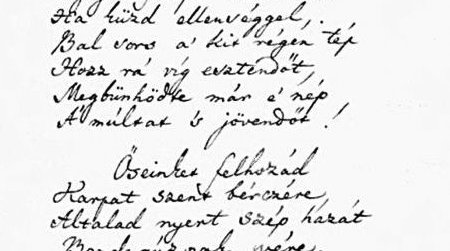 Ha küzd ellenséggel,
Bal sors a' kit régen tép
Hozz rá víg esztendőt,
Megbünhödte már e' nép
A' múltat 's jövendőt!
Őseinket felhozád
Kárpát szent bérczére
Általad nyert szép hazát
Bendegúznak vére,